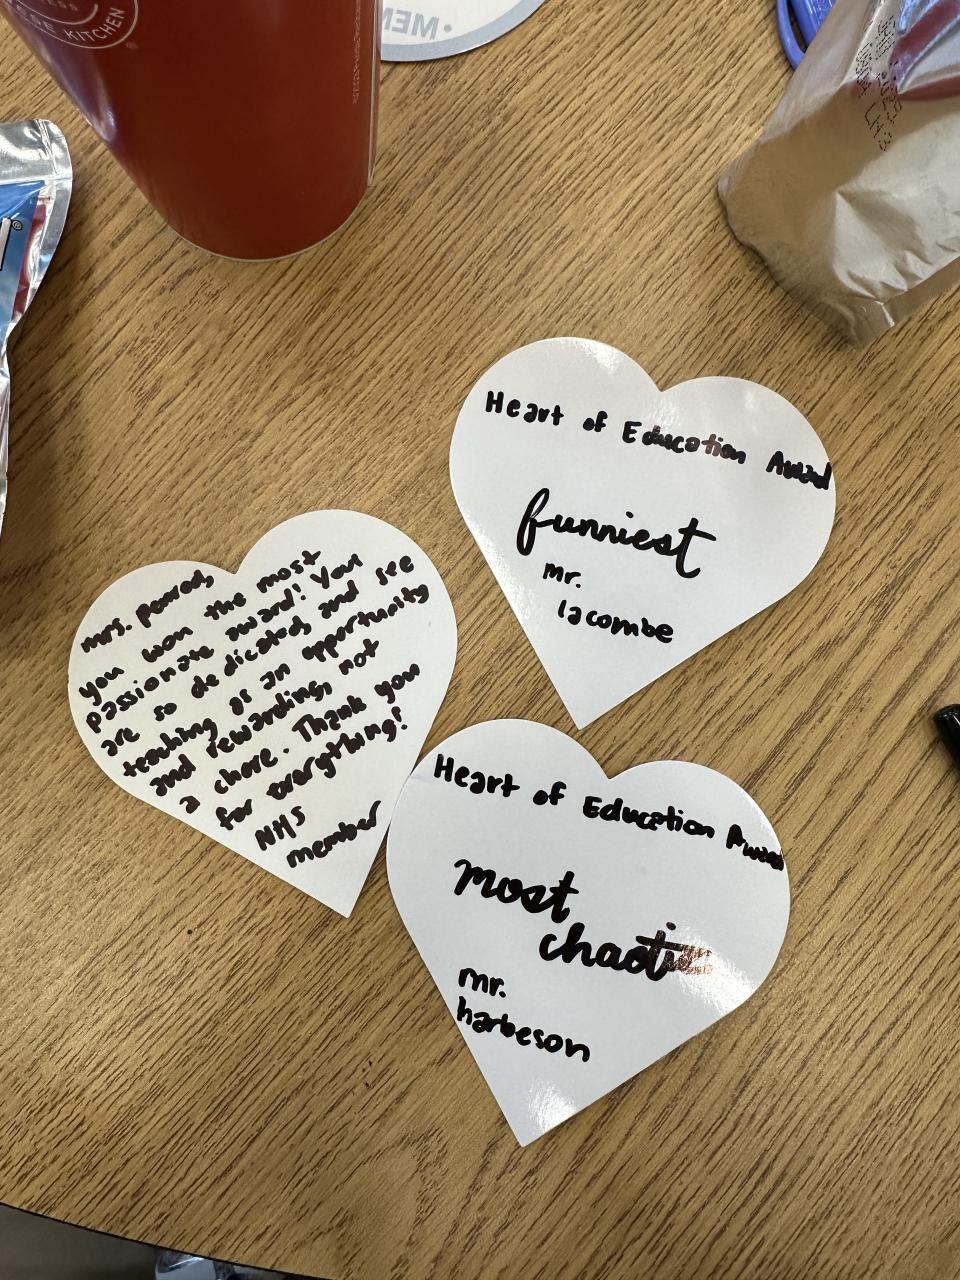 KITCHEN
MEN
Heart of Education Award
funniest
mr.
lacombe
mrs. penrod,
you won the most
passionate award! You
are so dedicated, and see
teaching as an opportunity
and rewarding, not
a chore. Thank you
for everything!
NHS
member
Heart of Education Award
most
chaotic
mr.
harbeson